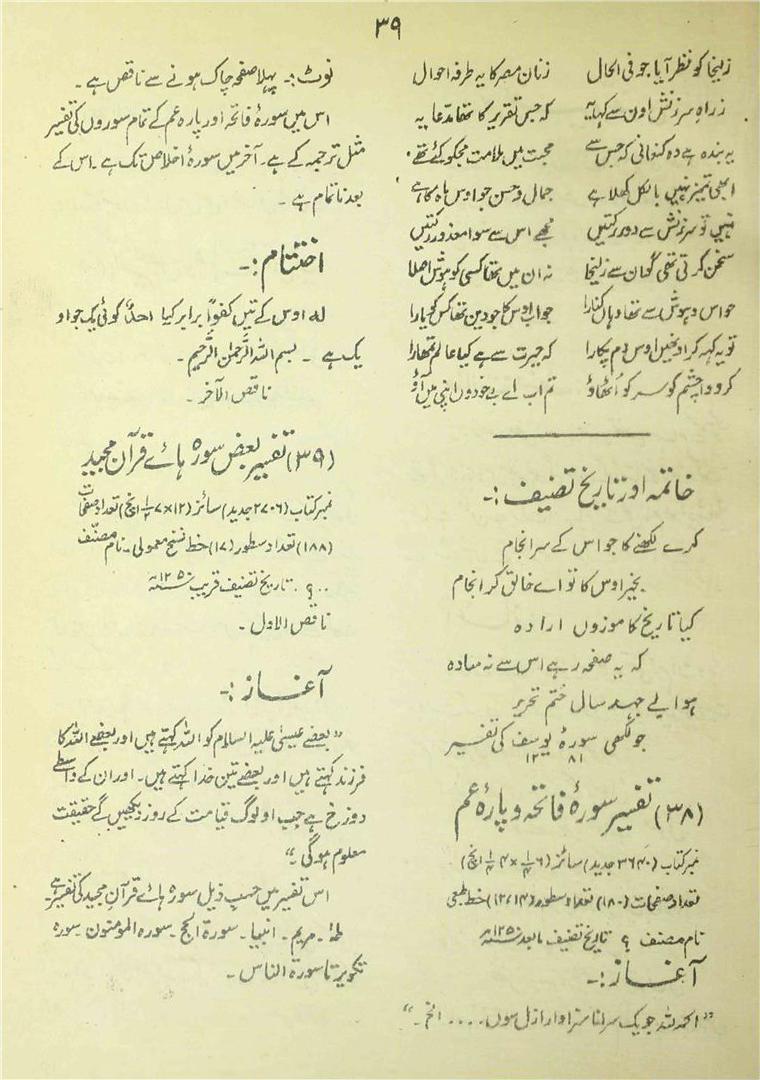 ۳۹
زلیخا کو نظر آیا جو فی الحال زنان مصر کا یہ طرفہ احوال
زراہِ سرزنش اون سے کہا یہ کہ جس تقریر کا تھا مدعا یہ
یہ بندہ ہے وہ کنعانی کہ جس سے محبت میں ملامت مجکو کئے تھے
ابھی تمیز نہیں بالکل کھلا ہے جمال و حسن جو اوس ماہ کا ہے
نہیں تو سرزنش سے دور رکتیں مجھے اس سے سوا معذور رکتیں
سخن کرتی تھی گو ان سے زلیخا نہ ان میں تھا کسی کو ہوش اصلا
حواس و ہوش سے تھا وہاں کنارا جواب اوس کا جو دین تھا کس کو یارا
تو یہ کہہ کر ادنھیں اوس دم پکارا کہ حیرت سے ہے کیا عالم تمھارا
کرو وا چشم کو سر کو اُٹھاؤ تم اب اے بے خودوں اپنی میں آؤ
خاتمہ اور تاریخ تصنیف :-
کرے لکھنے کا جو اس کے سر انجام
بخیر اوس کا تو اے خالق کر انجام
کیا تاریخ کا موزوں ارادہ
کہ یہ صفحہ رہے اس سے نہ سادہ
ہوا بے جہد سال ختم تحریر
جو لکھی سورۂ یوسف کی تفسیر
۱۲ ۸۱
(۳۸) تفسیر سورۂ فاتحہ و پارۂ عم
نمبر کتاب (۳۶۴۰ جدید) سائز (۶ ۱/۴ × ۴ ۱/۴ انچ)
تعداد صفحات (۱۸۰) تعداد سطور (۱۲،۱۴) خط طبعی
نام مصنف ؟ تاریخ تصنیف مابعد ۱۲۵۰ھ
آغاز :-
”الحمد للہ جو یک سرانا سزاوار ازل سوں .... الخ۔“
نوٹ :- پہلا صفحہ چاک ہونے سے ناقص ہے۔
اس میں سورۂ فاتحہ اور پارہ عم کے تمام سوروں کی تفسیر
مثل ترجمہ کے ہے۔ آخر میں سورۂ اخلاص تک ہے۔ اس کے
بعد ناتمام ہے۔
اختتام :-
لہ اوس کے تیں کفواً برابر کیا احدٌ کوئی یک جو او
یک ہے۔ بسم اللہ الرَّحمٰن الرَّحیم۔
ناقص الآخر۔
(۳۹) تفسیر بعض سورہ ہائے قرآن مجید
نمبر کتاب (۲۷۰۶ جدید) سائز (۱۲ × ۷ ۱/۲ انچ) تعداد صفحات
(۱۸۸) تعداد سطور (۱۷) خط نسخ معمولی۔ نام مصنّف
..؟. تاریخ تصنیف قریب ۱۲۵۰ھ
ناقص الاول۔
آغاز :-
”بعضے عیسیٰ علیہ السلام کو اللہ کہتے ہیں اور بعضے اللہ کا
فرزند کہتے ہیں اور بعضے تین خدا کہتے ہیں۔ اور ان کے واسطے
دوزخ ہے جب او لوگ قیامت کے روز دیکھیں گے حقیقت
معلوم ہوگی۔“
اس تفسیر میں حسب ذیل سورہ ہائے قرآن مجید کی تفسیر ہے۔
طٰہٰ۔ مریم۔ انبیا۔ سورۃ الحج۔ سورہ المومنون۔ سورہ
تکویر تا سورۃ الناس۔